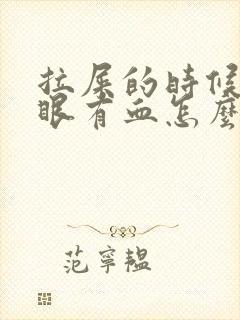 拉屎的時候
眼有血怎麼
范寧韞